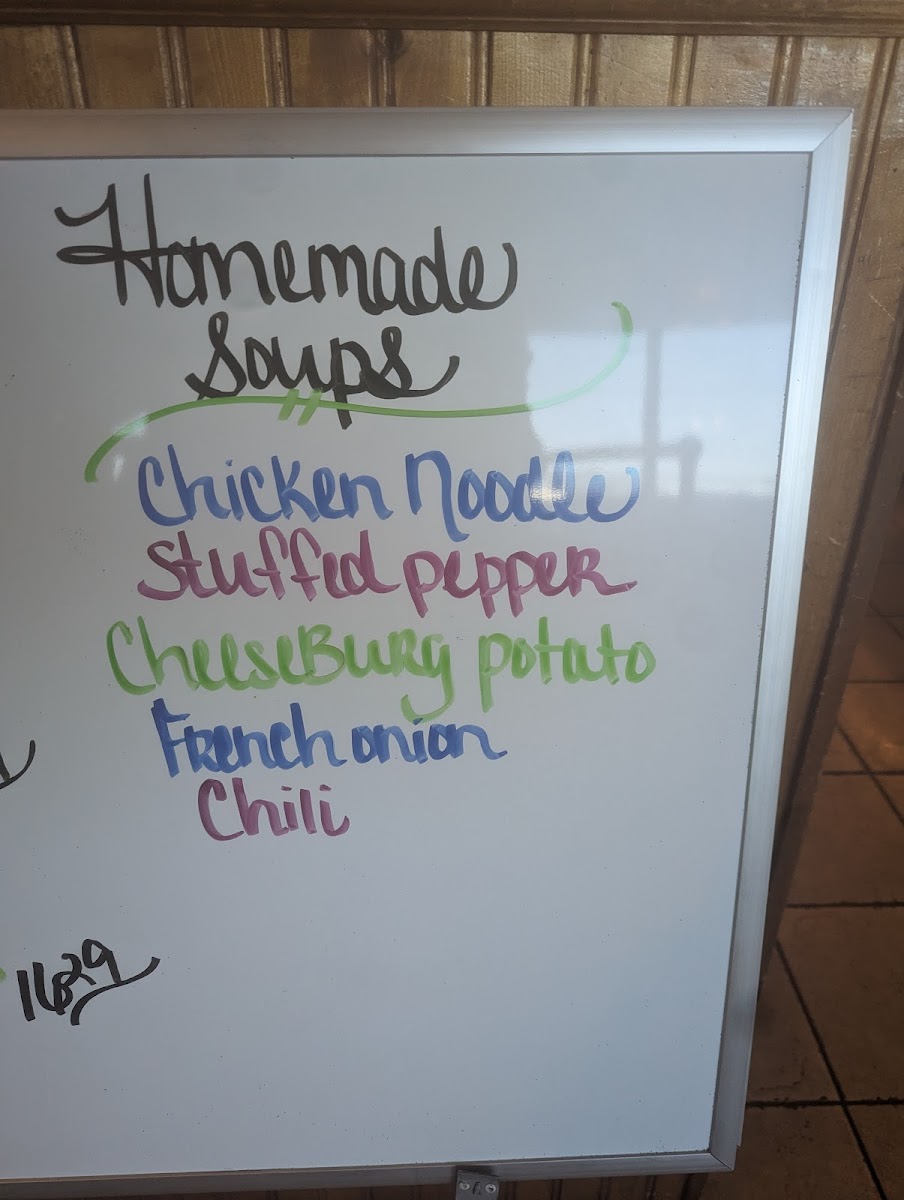 Homemade
Soups
Chicken Noodle
Stuffed pepper
CheeseBurg potato
French onion
Chili
16.29